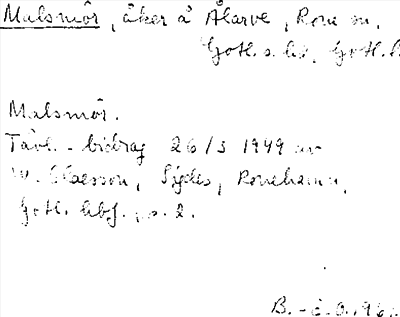 Malsmör, åker å Ålarve, Rone sn,
Gotl. s. hd, Gotl. l.
Malsmör.
Tävl.-bidrag 26/3 1949 av
W. Claesson, Sigdes, Ronehamn,
Gotl. hbf. s. 2.
B.-Å. O. 196